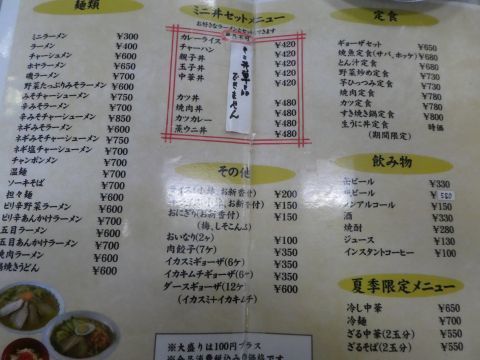 麺類
ミニラーメン ¥300
ラーメン ¥400
チャーシューメン ¥600
ホヤラーメン ¥650
磯ラーメン ¥700
野菜たっぷりみそラーメン ¥600
みそチャーシューメン ¥750
辛みそラーメン ¥650
辛みそチャーシューメン ¥850
ネギみそラーメン ¥600
ネギみそチャーシューメン ¥750
ネギ塩チャーシューメン ¥700
チャンポンメン ¥700
温麺 ¥700
ソーキそば ¥700
担々麺 ¥600
ピリ辛野菜ラーメン ¥600
ピリ辛あんかけラーメン ¥700
五目ラーメン ¥600
五目あんかけラーメン ¥700
焼肉ラーメン ¥600
鍋焼きうどん ¥600
ミニ丼セットメニュー
お好きなラーメンとセットできます
カレーライス ¥420
チャーハン ¥420
親子丼 ¥420
玉子丼 ¥420
中華丼 ¥420
カツ丼 ¥480
焼肉丼 ¥480
カツカレー ¥480
蒸ウニ丼 ¥480
ミニ丼単品
できません
その他
お新香付) ¥200
お新香付) ¥150
おにぎり(お新香付) ¥150
(梅、しそこんぶ)
おいなり(2ヶ) ¥100
肉餃子(7ヶ) ¥350
イカスミギョーザ(6ヶ) ¥350
イカキムチギョーザ(6ヶ) ¥350
ダースギョーザ(12ヶ) ¥600
(イカスミ+イカキムチ)
※大盛りは100円プラス
定食
ギョーザセット ¥650
焼魚定食(サバ、ホッケ) ¥680
とん汁定食 ¥680
野菜炒め定食 ¥680
芋ひっつみ定食 ¥680
焼肉定食 ¥680
カツ定食 ¥780
すき焼き鍋定食 ¥800
生うに丼定食 時価
(期間限定)
飲み物
缶ビール ¥330
ビール ¥550
ノンアルコール ¥150
酒 ¥330
焼酎 ¥280
ジュース ¥130
インスタントコーヒー ¥100
夏季限定メニュー
冷し中華 ¥650
冷麺 ¥700
ざる中華(2玉分) ¥550
ざるそば(2玉分) ¥550